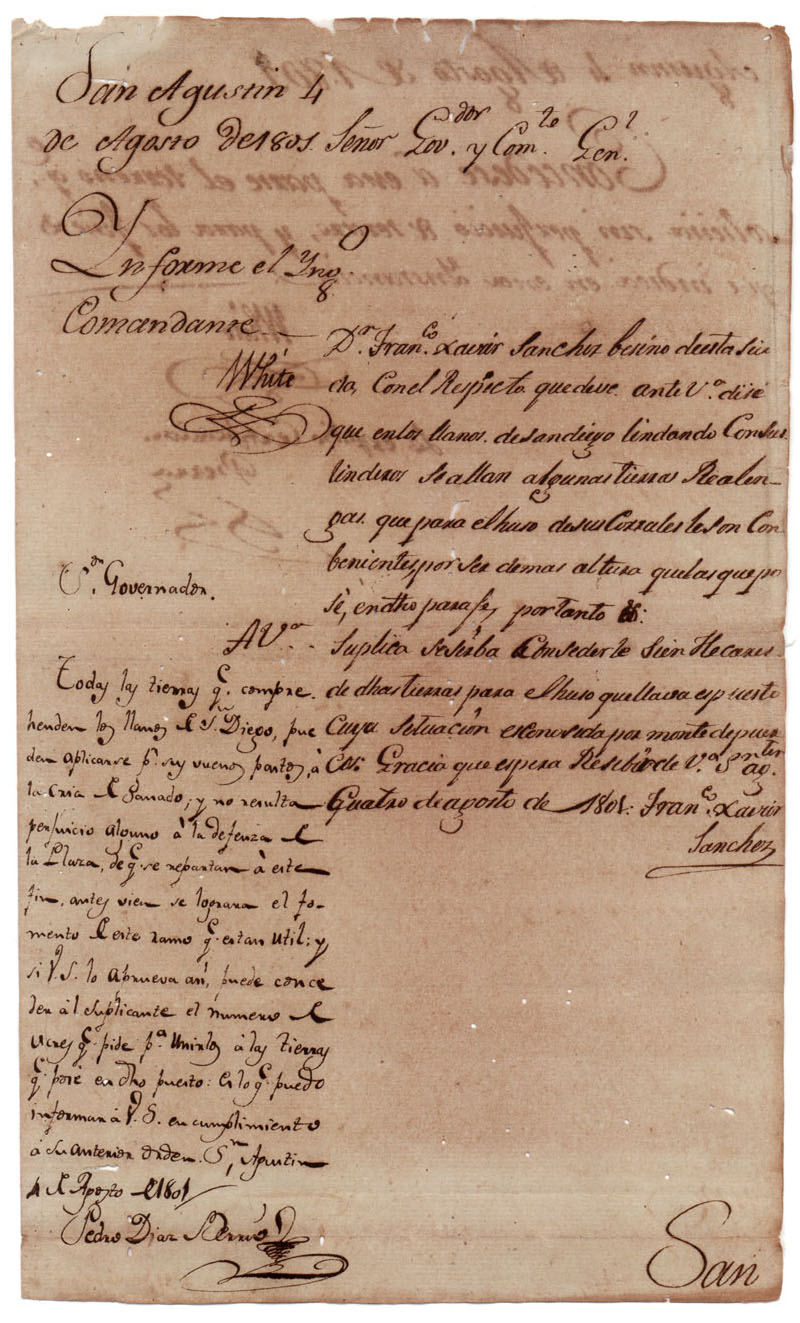 San Agustin 4
de Agosto de 1801.
Ynforme el Yng.º
Comandante
White
Señor Gov.dor y Com.te Gen.l
D.n Fran.co Xavier Sanchez besino de esta Siu
da, Con el Respecto que deve ante V.a dise
que en los llanos de san diego lindando Con sus
linderos se allan algunas tierras Realen-
gas que para el huso de sus Corrales le son Con
benientes por ser de mas altura que las que po
sé, en dho paraje por tanto
A V.a
Suplica se sirba Consederle Sien Hecares
de dhas tierras para el huso que lleva espuesto
Cuya Situación es conosida por monte de puer
cos. Gracia que espera Resebir de V.a S.n Ag.
Quatro de agosto de 1801: Fran.co Xavier
Sanchez
S.or Governador.
Todas las tierras q.e compre
henden los llanos de S.n Diego, pue
den aplicarse p.r sus vuenos pastos, à
la cria de Ganado; y no resulta
perjuicio alguno à la defenza de
la Plaza, de q.e se repartan à este
fin, antes vien se lograra el fo-
mento de este ramo q.e es tan util; y
si V.S. lo aprueva asi, puede conce
der àl suplicante el numero de
acres q.e pide p.a unirlos à las tierras
q.e posé en dho puesto: es lo q.e puedo
informar à V.S. en cumplimiento
à su anterior orden. S.n Agustin
4 de Agosto de 1801
Pedro Diaz Berrio
San